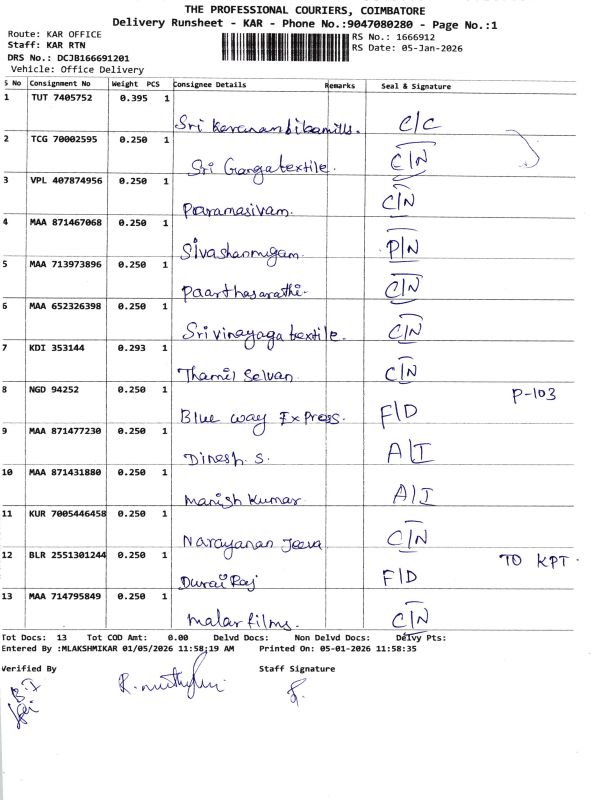 THE PROFESSIONAL COURIERS, COIMBATORE
Delivery Runsheet - KAR - Phone No.:9047080280 - Page No.:1
Route: KAR OFFICE
Staff: KAR RTN
DRS No.: DCJB166691201
Vehicle: Office Delivery
RS No.: 1666912
RS Date: 05-Jan-2026
S No Consignment No Weight PCS Consignee Details Remarks Seal & Signature
1 TUT 7405752 0.395 1
C/C
2 TCG 70002595 0.250 1
Sri Ganga textile. C/N
3 VPL 407874956 0.250 1
Paramasivam. C/N
4 MAA 871467068 0.250 1
Sivashanmugam. P/N
5 MAA 713973896 0.250 1
Paarthasarathi. C/N
6 MAA 652326398 0.250 1
Sri vinayaga textile. C/N
7 KDI 353144 0.293 1
Thamil Selvan. C/N
8 NGD 94252 0.250 1 P-103
Blue way Express. F/D
9 MAA 871477230 0.250 1
Dinesh. S. A/I
10 MAA 871431880 0.250 1
Manish Kumar. A/I
11 KUR 7005446458 0.250 1
Narayanan Jeeva C/N
12 BLR 2551301244 0.250 1 TO KPT.
Durai Raj F/D
13 MAA 714795849 0.250 1
malar films. C/N
Tot Docs: 13 Tot COD Amt: 0.00 Delvd Docs: Non Delvd Docs: Delvy Pts:
Entered By :MLAKSHMIKAR 01/05/2026 11:58:19 AM Printed On: 05-01-2026 11:58:35
Verified By Staff Signature